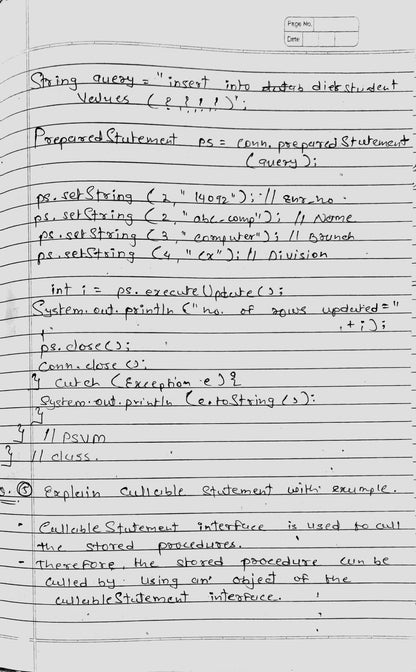 Page No.
Date
String query = "insert into diet student
Values (?, ?, ?, ?)";
PreparedStatement ps = conn.preparedStatement
(query);
ps.setString (2, "14092"); // enr_no.
ps.setString (2, "abc_comp"); // Name
ps.setString (3, "computer"); // Branch
ps.setString (4, "cx"); // Division
int i = ps.executeUpdate ();
System.out.println ("no. of rows updated = "
+ i);
ps.close();
Conn.close ();
} catch (Exception e) {
System.out.println (e.toString ());
}
} // PSVM
} // class.
Q. ⑤ Explain Callable Statement with example.
- CallableStatement interface is used to call
the stored procedures.
- Therefore, the stored procedure can be
called by using an object of the
callableStatement interface.